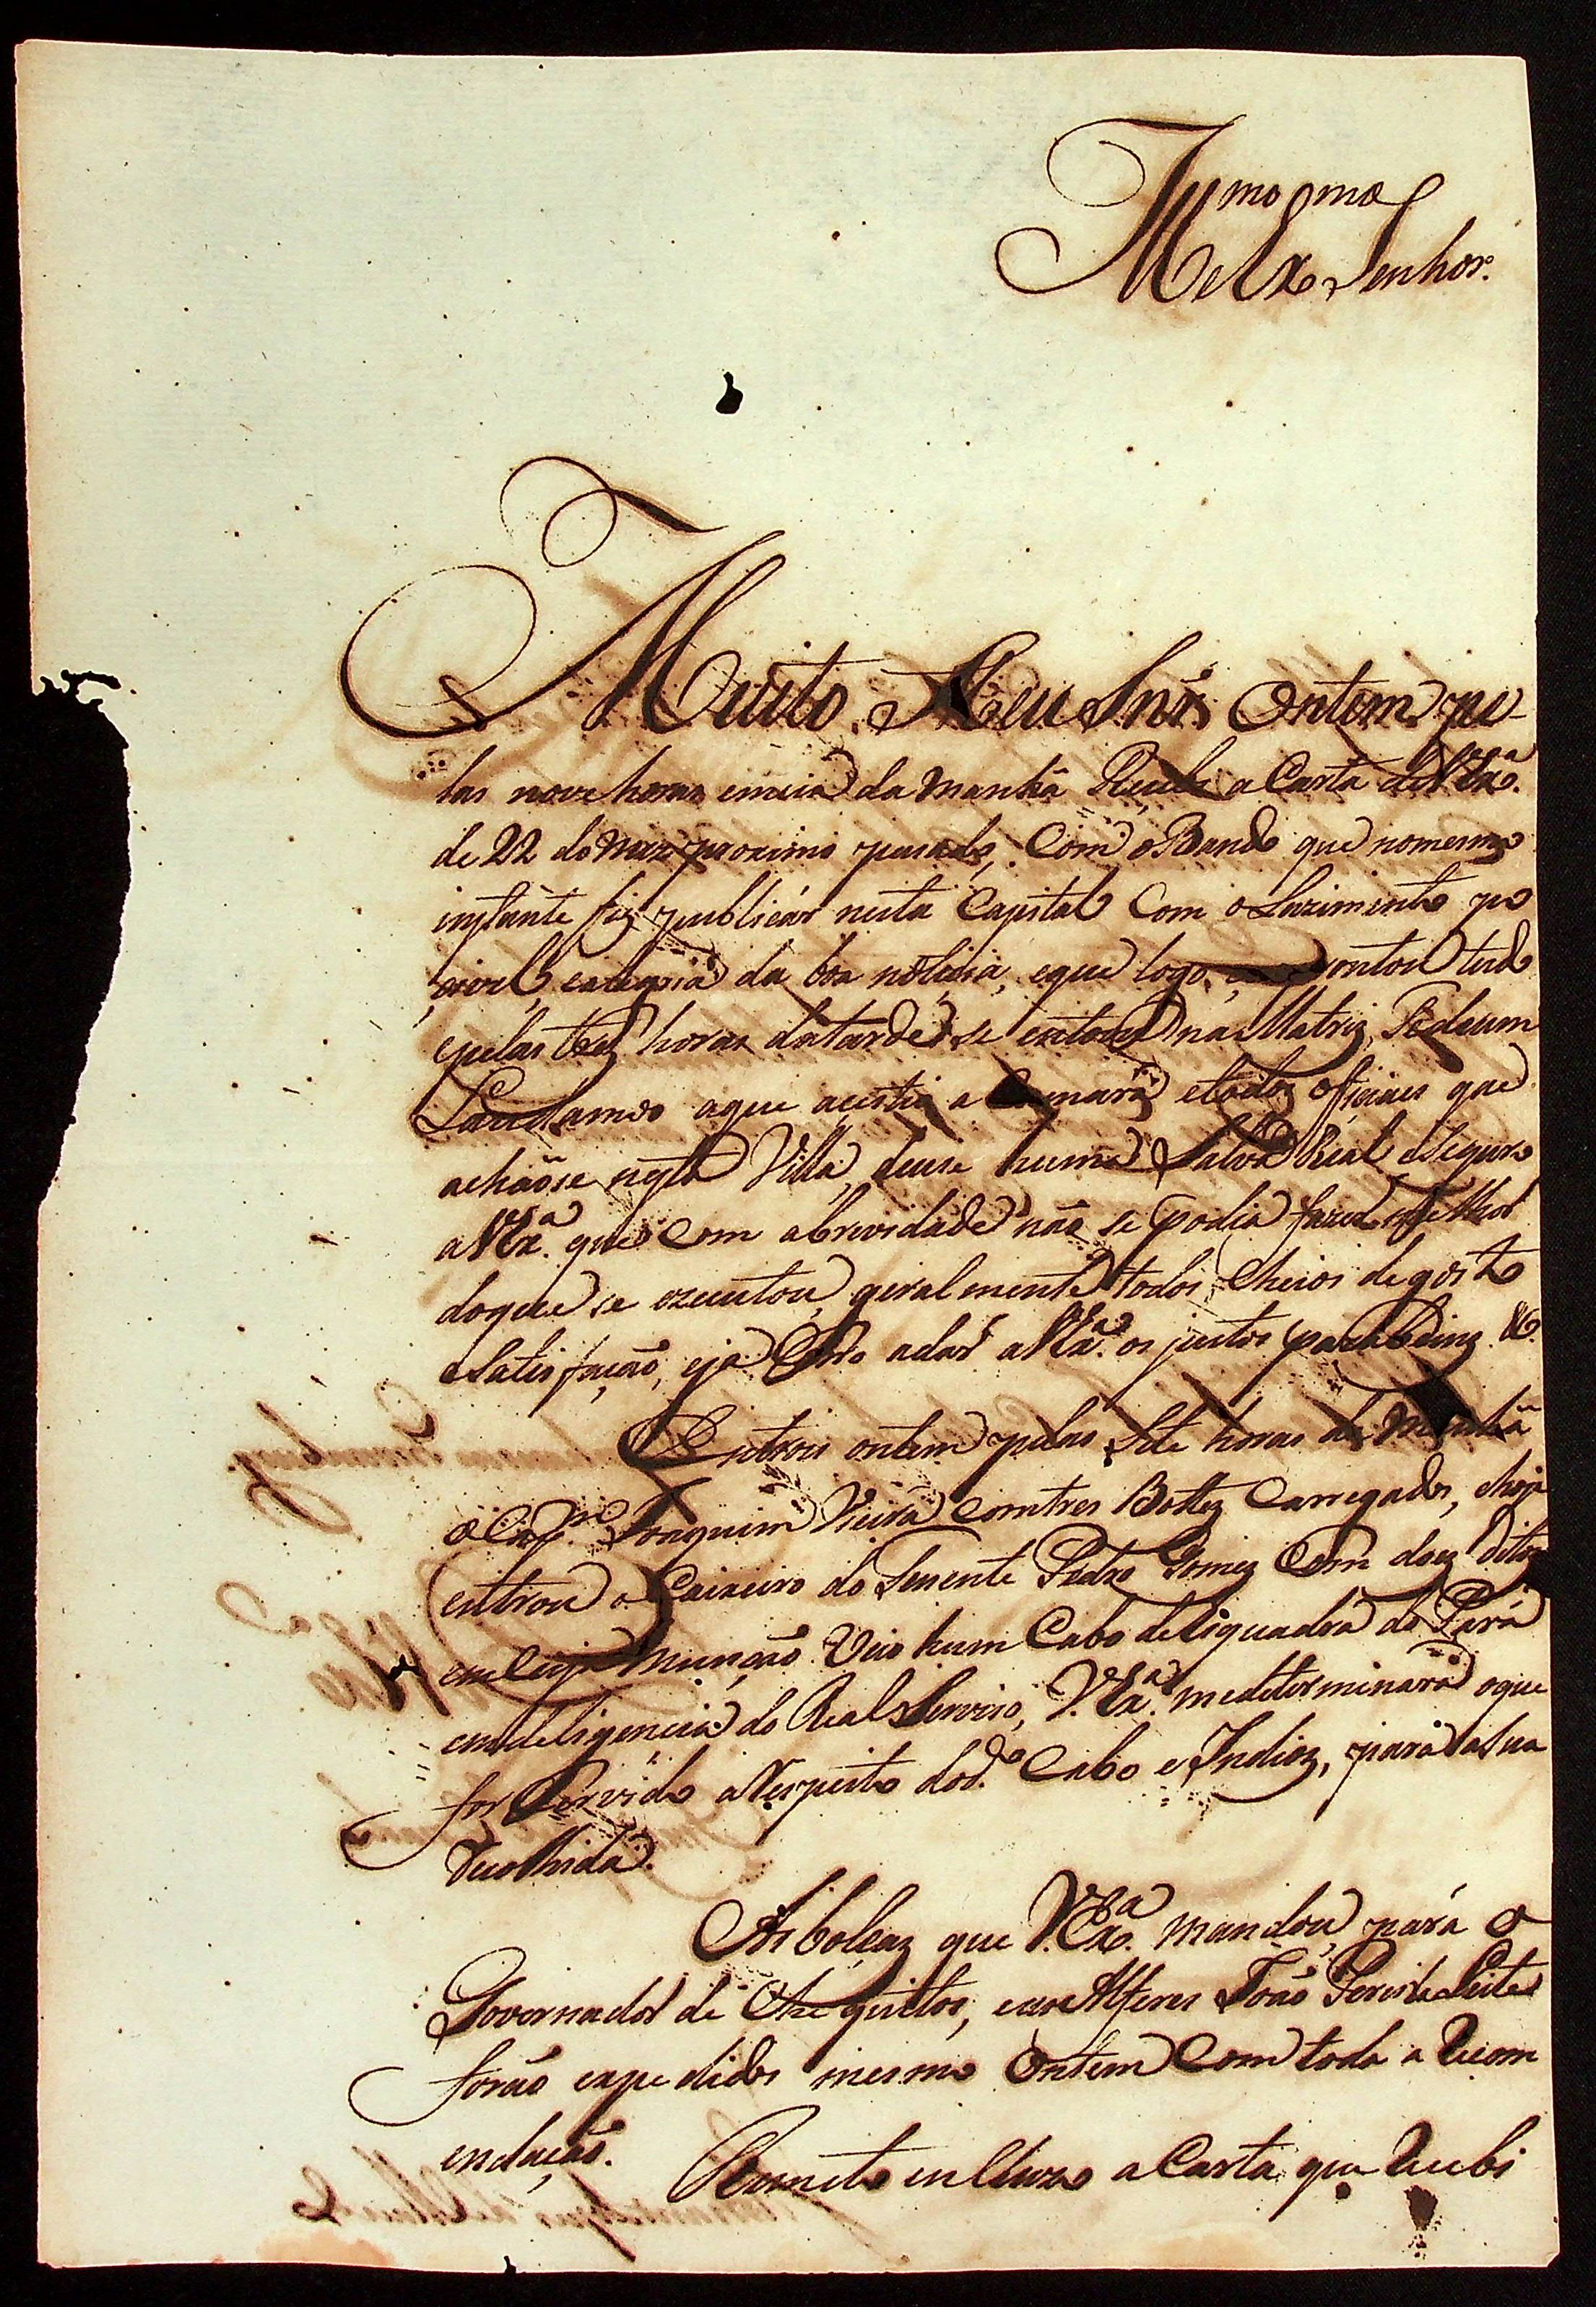 Ill.mo e Ex.mo Senhor.
Muito Meu Snr. Ontem pe-
las nove horas emeia da manhã Recebi a Carta de V. Ex.ª
de 22 do mez proximo pasado, Com o Bando que nomesmo
instante fiz publicár nesta Capital Com o Luzimento po
civel, ealegria da boa noticia, eque logo, aprontou tudo
epelas tres horas datarde se entoou na Matriz, Tedeum
Laudamos aque acestio a Camara etodos oficiaes que
achãose nesta Villa, deuse huma Salva Real eSeguro
aV. Ex.ª que Com abrevidade não se podia fazer melhor
doque se ezecutou, geralmente todos Cheios degosto
eSatisfação, eja Corro adar aV. Ex.ª os justos parabeins &.
Entrou ontem pelas Sete horas da manhã
o Cap.m Joaquim Vieira Comtres Bottes Carregados, ehoje
entrou o Caixeiro do Tenente Pedro Gomes Com does ditos
em Cuja Munção Veio hum Cabo deEsquadra do Pará
emdeligencia do Real Servico, V. Ex.ª medeterminará oque
for Servido aRespeito dod.º Cabo e Indios, para asua
Recolhida.
As bolças que V. Ex.ª mandou, pará o
Governador de Chequitos, eao Alferes João Leite
forão expedidos mesmo Ontem Com toda a Recom
endação.
Remeto incluzo a Carta que Recebi